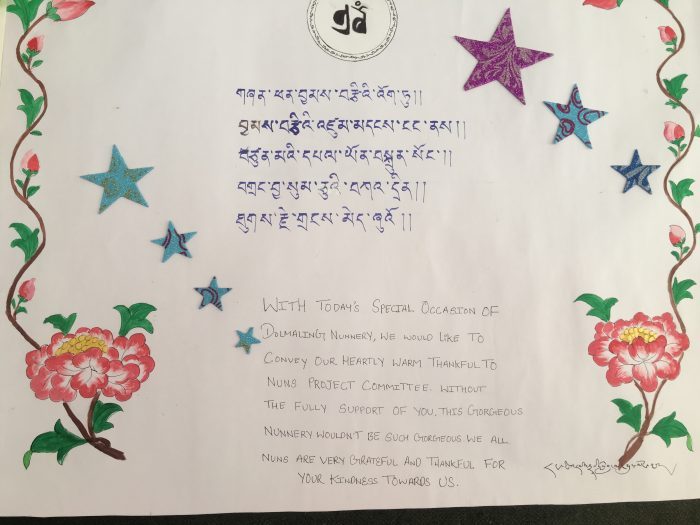 གཞན་ཕན་བྱམས་བརྩེའི་འོག་ཏུ།།
བྱམས་བརྩེའི་འཛུམ་མདངས་ངང་ནས།།
བཙུན་མའི་དཔལ་ཡོན་བསྐྲུན་སོང་།།
བགྲང་བྱ་སུམ་ཅུའི་བཀའ་དྲིན།།
ཐུགས་རྗེ་གྲངས་མེད་ཞུའོ།།
WITH TODAY'S SPECIAL OCCASION OF
DOLMALING NUNNERY, WE WOULD LIKE TO
CONVEY OUR HEARTLY WARM THANKFUL TO
NUNS PROJECT COMMITTEE. WITHOUT
THE FULLY SUPPORT OF YOU, THIS GORGEOUS
NUNNERY WOULDN'T BE SUCH GORGEOUS. WE ALL
NUNS ARE VERY GRATEFUL AND THANKFUL FOR
YOUR KINDNESS TOWARDS US.